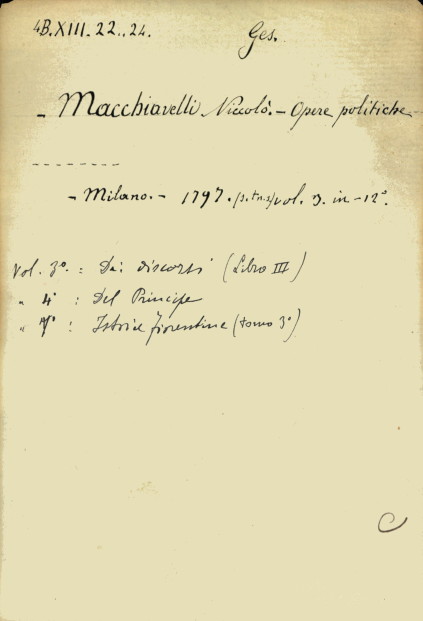 4B.XIII.22..24.
Ges.
- Macchiavelli Niccolò. - Opere politiche
- Milano. - 1797. (s.tn.s) vol. 3. in-12°.
Vol. 3°. : Dei discorsi (Libro III)
" 4° : Del Principe
" 7° : Istorie fiorentine (tomo 3°)
C